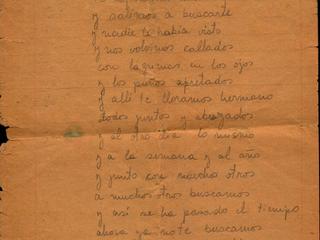 y salimos a buscarte
y nadie te había visto
y nos volvimos callados
con lagrimas en los ojos
y los puños apretados
y allí te lloramos hermano
todos juntos y abrazados
y al otro día lo mismo
y a la semana y al año
y junto con muchos otros
a muchos otros buscamos
y así se ha pasado el tiempo
ahora ya no te buscamos